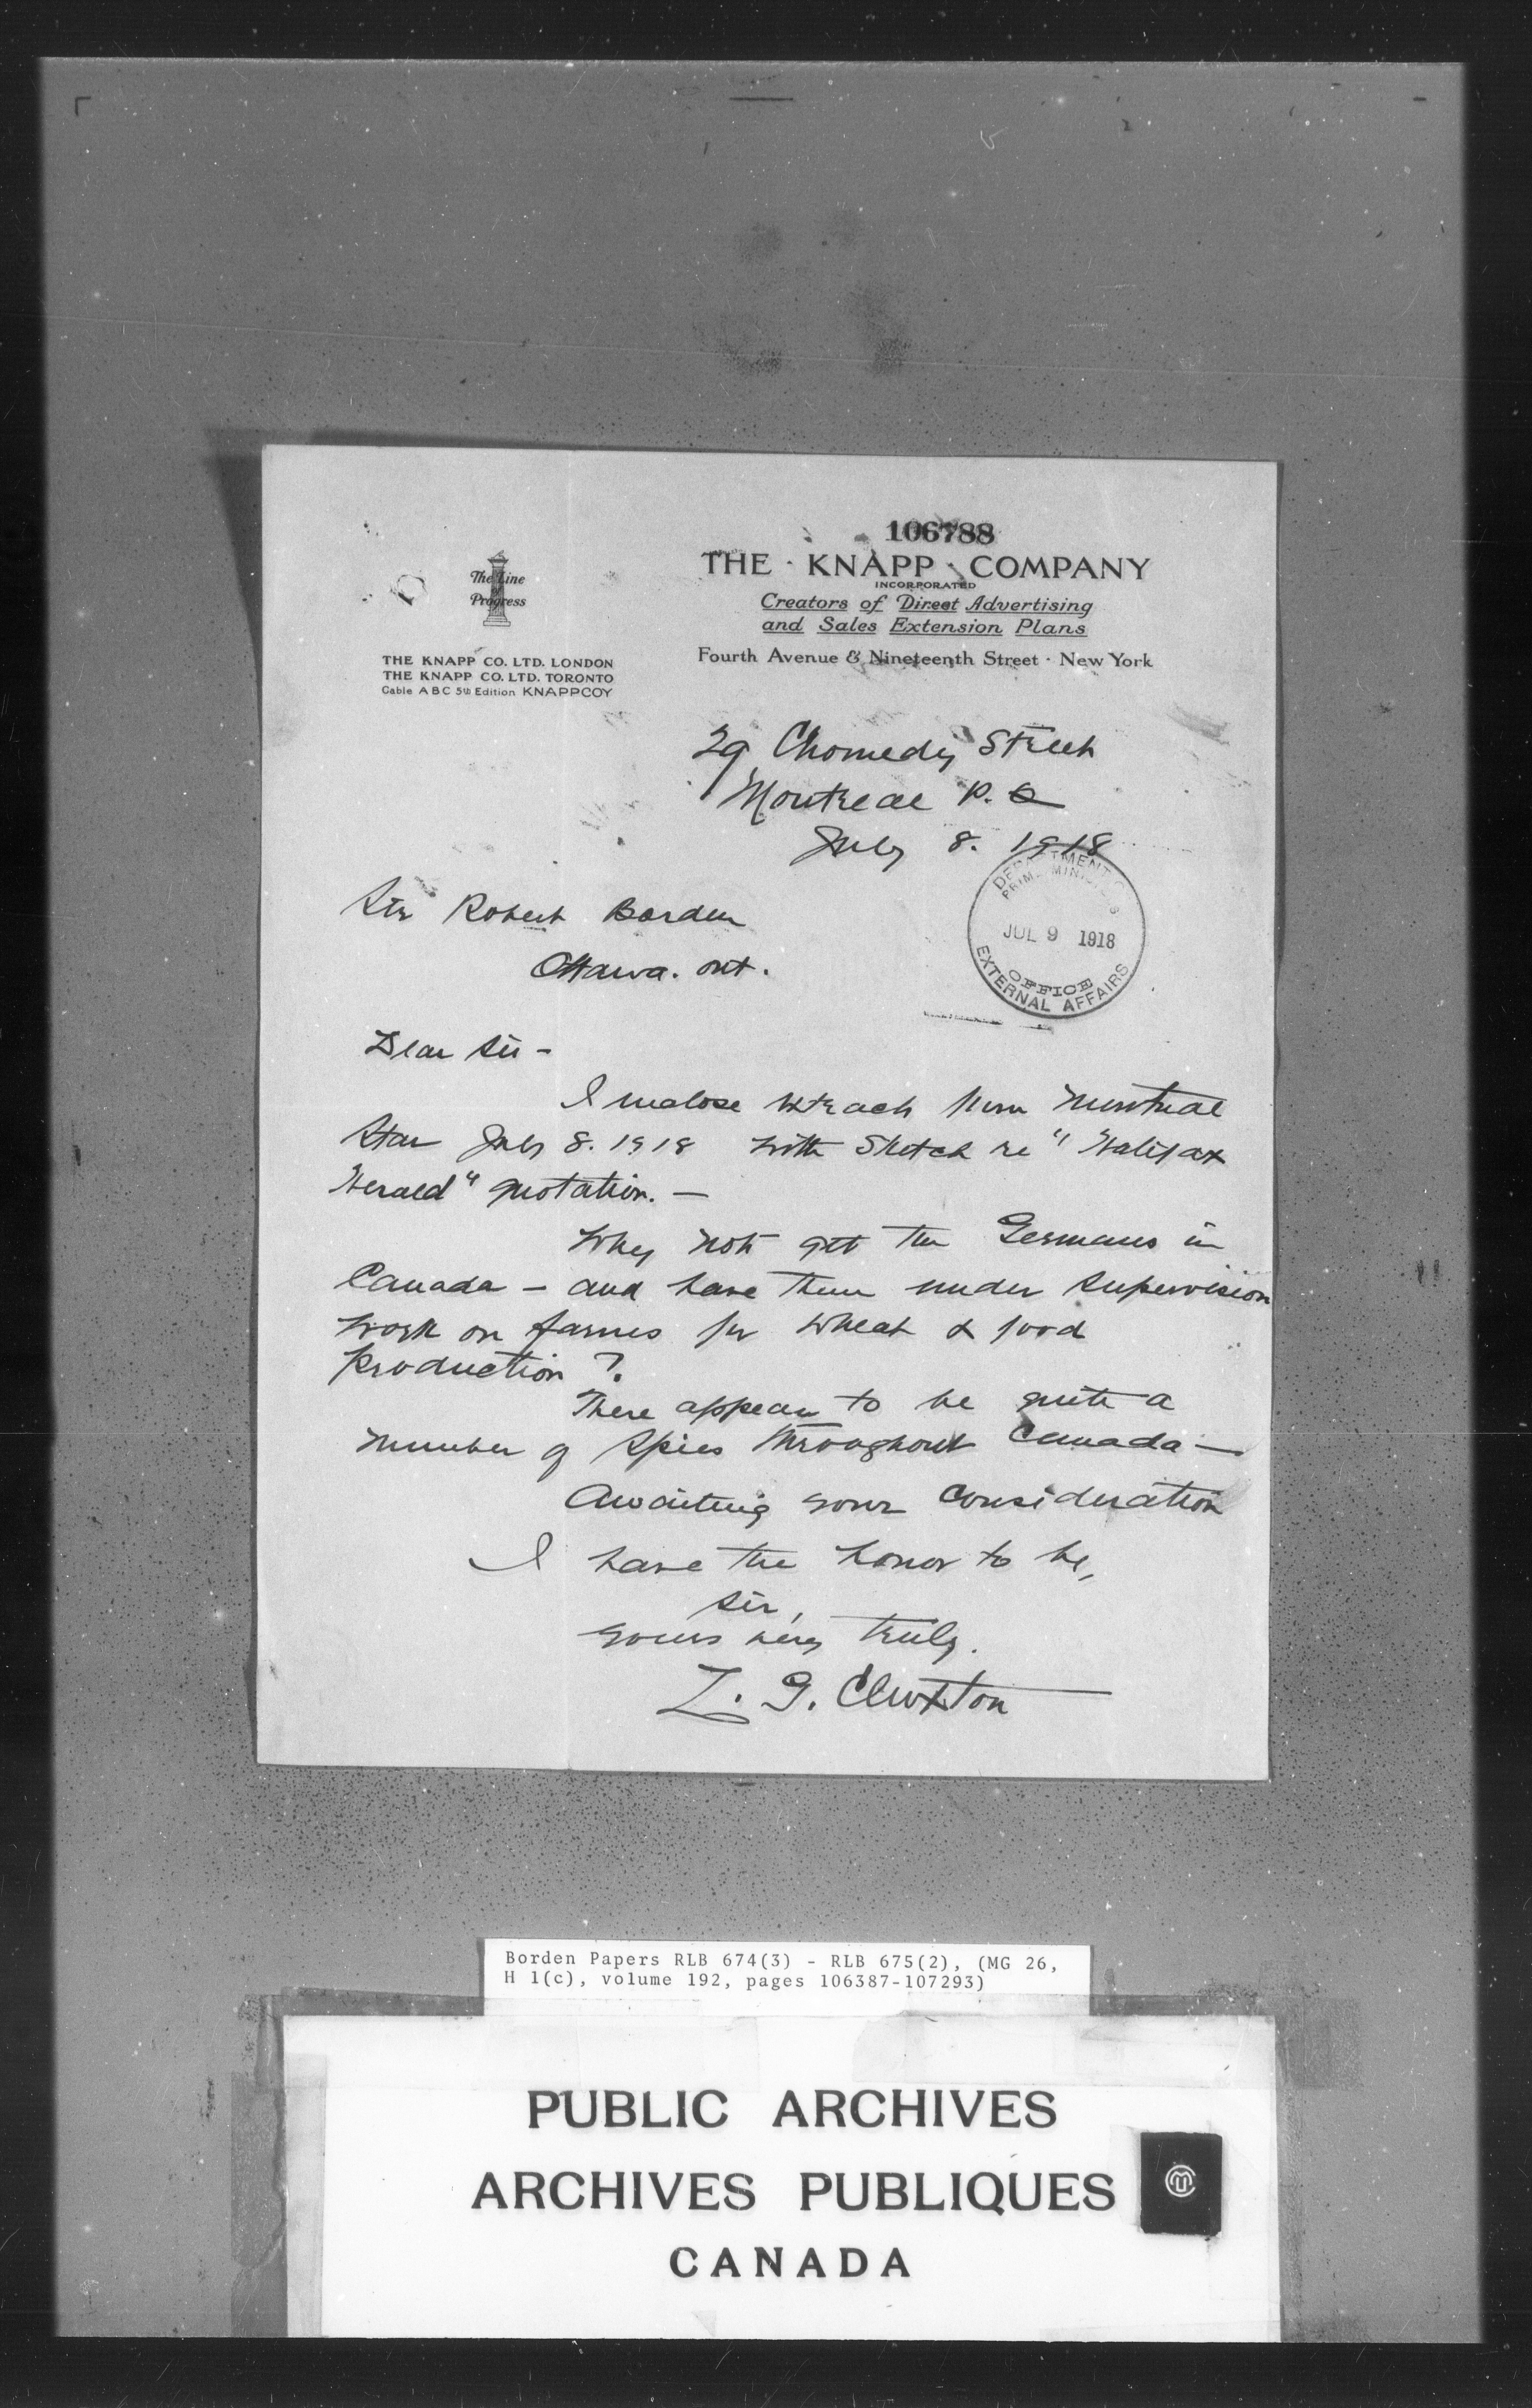 106788
THE · KNAPP · COMPANY
INCORPORATED
Creators of Direct Advertising
and Sales Extension Plans
Fourth Avenue & Nineteenth Street · New York
The Line
Progress
THE KNAPP CO. LTD. LONDON
THE KNAPP CO. LTD. TORONTO
Cable A B C 5th Edition KNAPPCOY
29 Chomedy Street
Montreal P.Q
July 8. 1918
DEPARTMENT
PRIME MINISTER'S
JUL 9 1918
OFFICE
EXTERNAL AFFAIRS
Sir Robert Borden
Ottawa. Ont.
Dear Sir -
I enclose extract from Montreal
Star July 8. 1918 with Sketch re "Halifax
Herald" quotation. —
Why not get the Germans in
Canada - and have them under supervision
work on farms for wheat & food
production ?.
There appear to be quite a
number of spies throughout Canada —
Awaiting your consideration
I have the honor to be,
Sir,
Yours very truly.
L. G. Cluxton
Borden Papers RLB 674(3) - RLB 675(2), (MG 26,
H 1(c), volume 192, pages 106387-107293)
PUBLIC ARCHIVES
ARCHIVES PUBLIQUES
CANADA